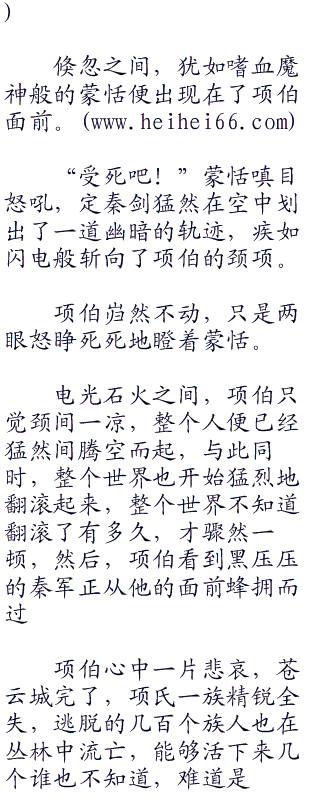 )
倏忽之间，犹如嗜血魔
神般的蒙恬便出现在了项伯
面前。(www.heihei66.com)
“受死吧！”蒙恬嗔目
怒吼，定秦剑猛然在空中划
出了一道幽暗的轨迹，疾如
闪电般斩向了项伯的颈项。
项伯岿然不动，只是两
眼怒睁死死地瞪着蒙恬。
电光石火之间，项伯只
觉颈间一凉，整个人便已经
猛然间腾空而起，与此同
时，整个世界也开始猛烈地
翻滚起来，整个世界不知道
翻滚了有多久，才骤然一
顿，然后，项伯看到黑压压
的秦军正从他的面前蜂拥而
过
项伯心中一片悲哀，苍
云城完了，项氏一族精锐全
失，逃脱的几百个族人也在
丛林中流亡，能够活下来几
个谁也不知道，难道是